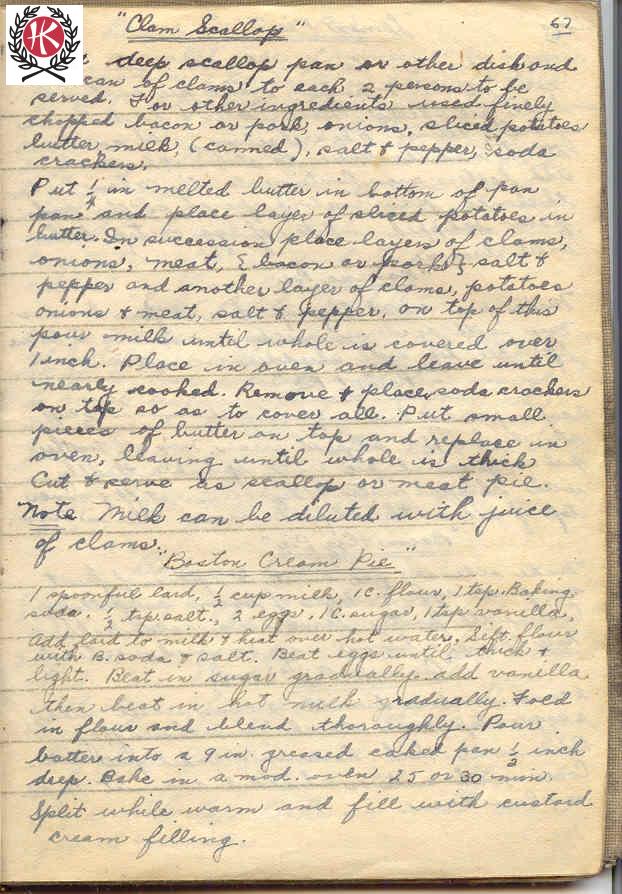 "Clam Scallop"
67
deep scallop pan or other dish and
can of clams to each 2 persons to be
served. For other ingredients used finely
chopped bacon or pork, onions, sliced potatoes
butter, milk, (canned), salt & pepper, soda
crackers.
Put 1/4 in melted butter in bottom of pan
pan and place layer of sliced potatoes in
butter. In succession place layers of clams,
onions, meat, { bacon or pork } salt &
pepper and another layer of clams, potatoes
onions & meat, salt & pepper, on top of this
pour milk until whole is covered over
1 inch. Place in oven and leave until
nearly cooked. Remove & place soda crackers
on top so as to cover all. Put small
pieces of butter on top and replace in
oven, leaving until whole is thick
Cut & serve as scallop or meat pie.
Note Milk can be diluted with juice
of clams.
"Boston Cream Pie"
1 spoonful lard, 1/2 cup milk, 1 C. flour, 1 tsp. Baking
soda. 1/2 tsp. salt., 2 eggs, 1 C. sugar, 1 tsp vanilla,
Add lard to milk & heat over hot water. Sift flour
with B. soda & salt. Beat eggs until thick &
light. Beat in sugar gradually add vanilla
then beat in hot milk gradually. Fold
in flour and blend thoroughly. Pour
batter into a 9 in. greased caked pan 1/2 inch
deep. Bake in a mod. oven 25 or 30 min
Split while warm and fill with custard
cream filling.